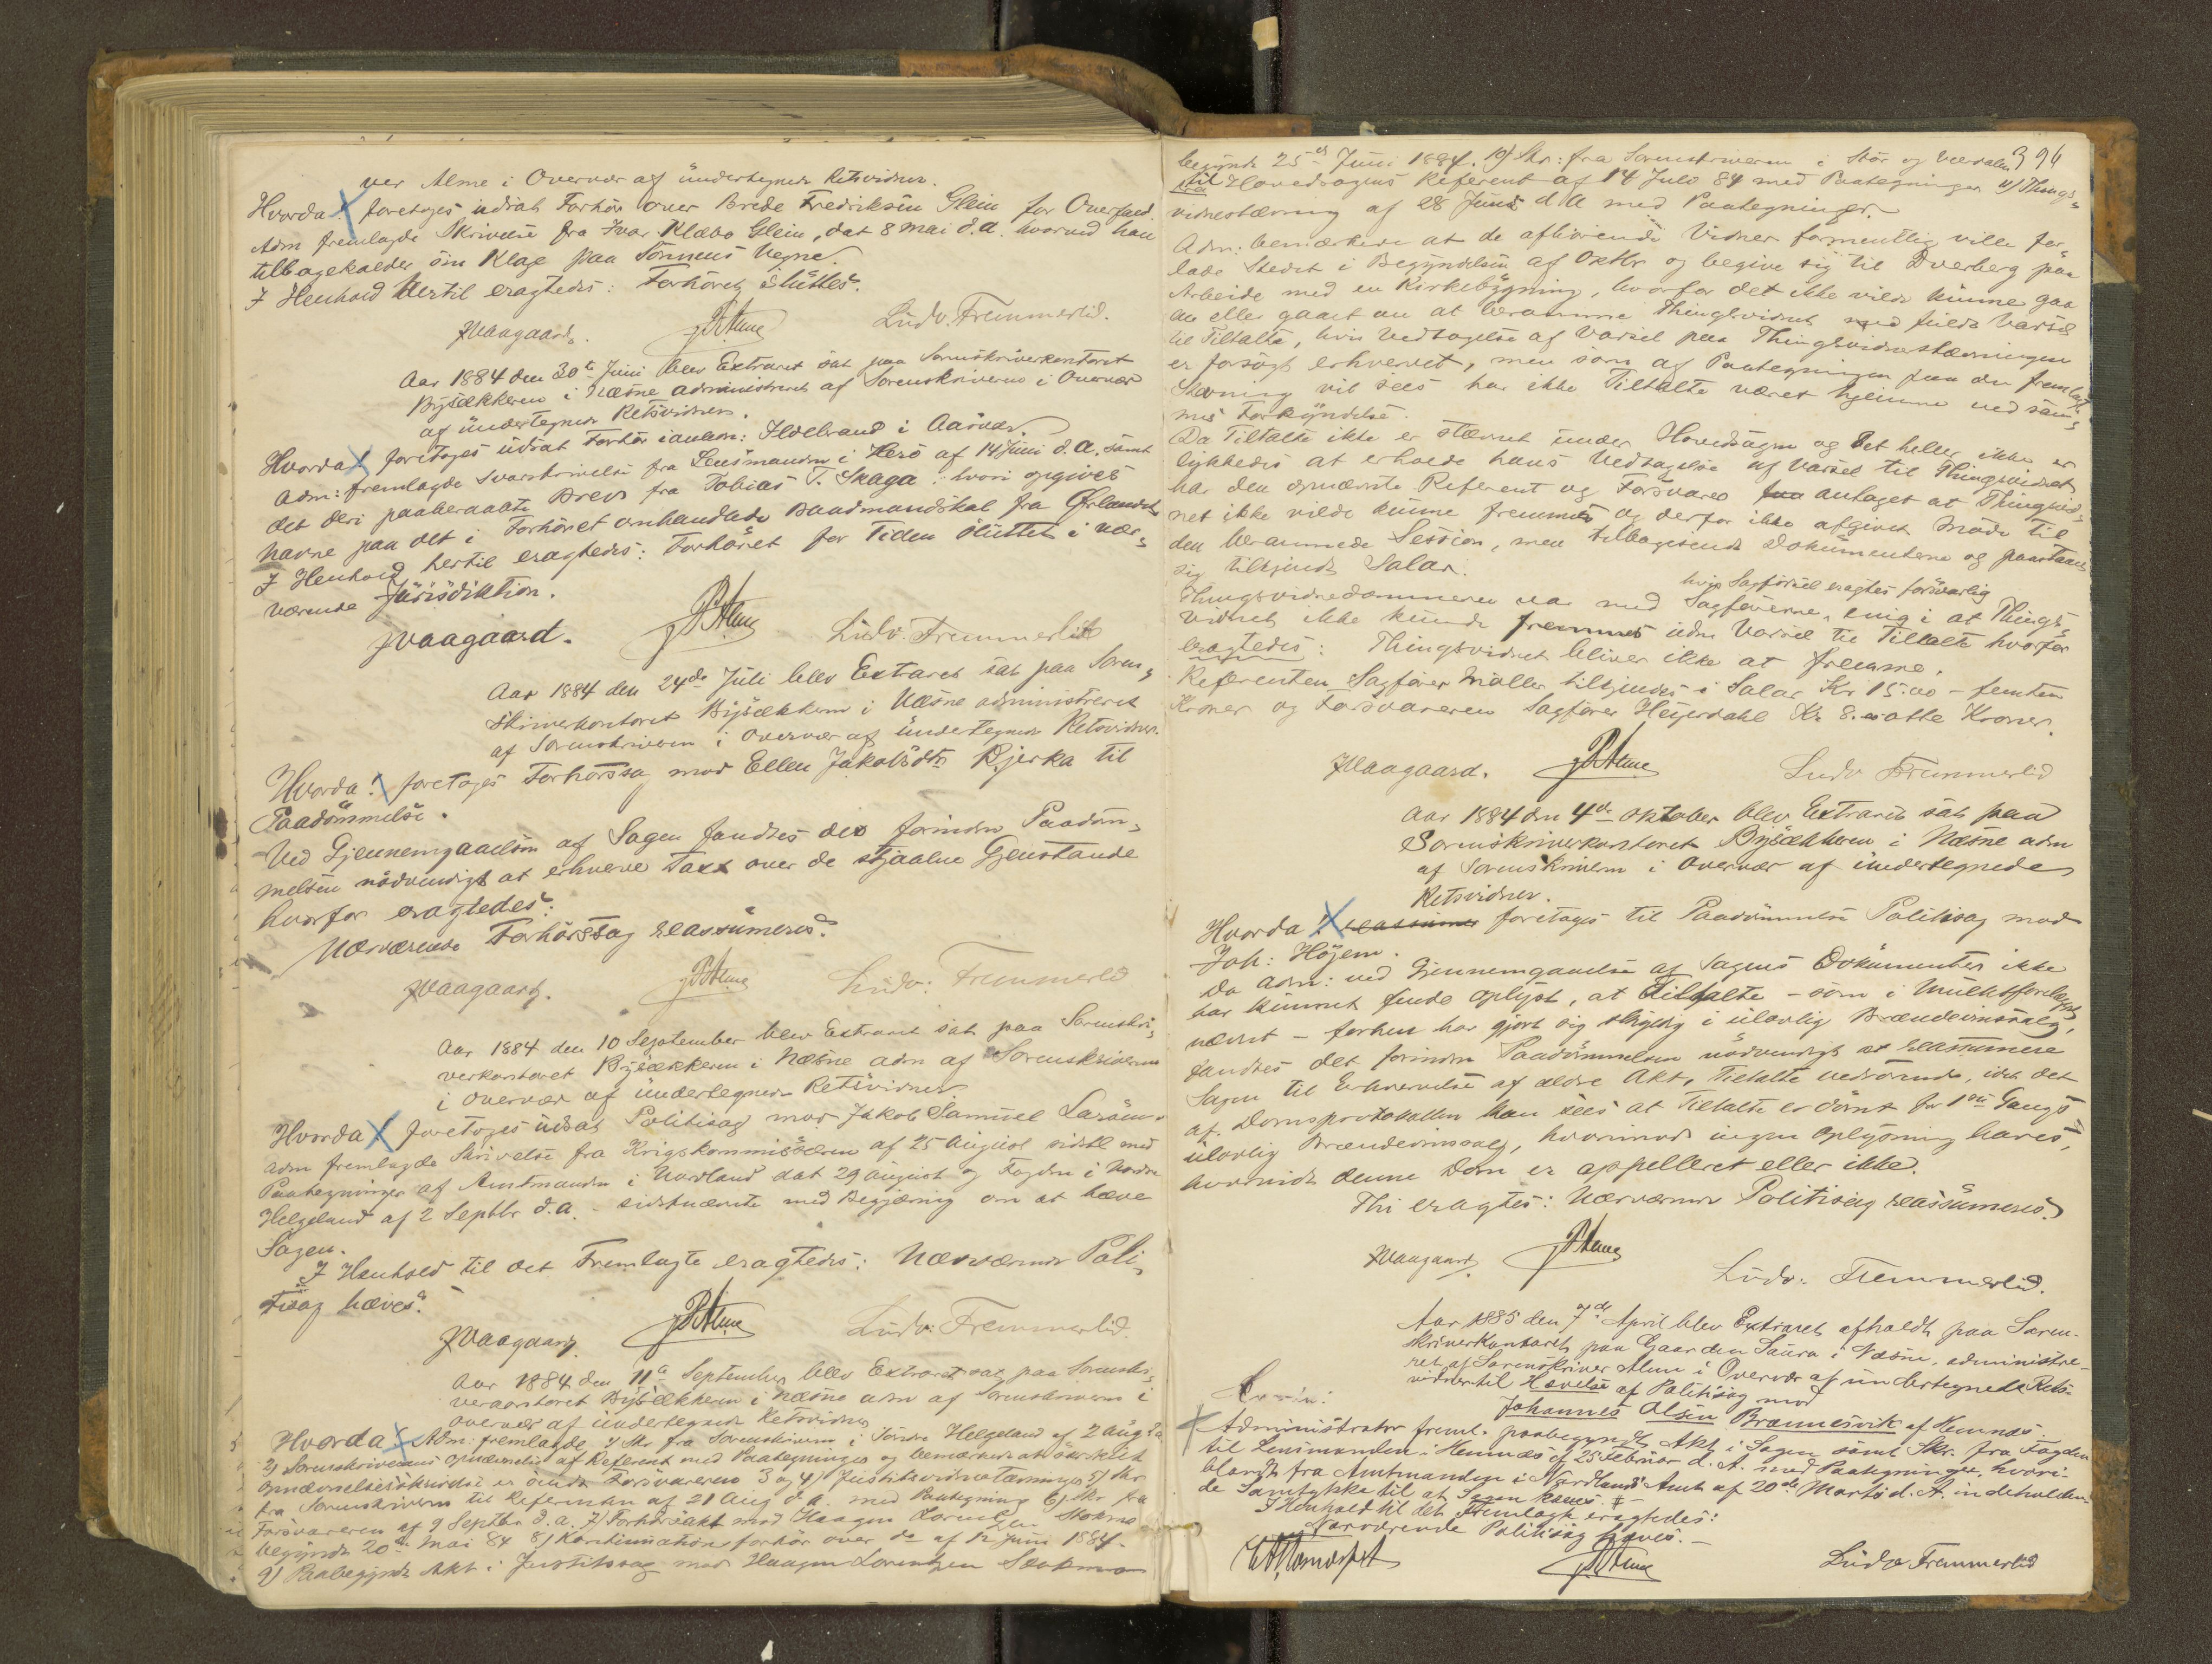 ver Alme i Overvær af undertegnede Retsvidner.
Hvorda! foretoges udsat Forhör over Brede Fredriksen Glein for Overfald.
Adm fremlagde Skrivelse fra Ivar Klæbo Glein, dat 8 Mai d.A. hvorved han
tilbagekalder sin Klage paa Sönnens Vegne.
I Henhold hertil eragtedes: Forhöret sluttes.
JWaagaard. Ludv. Fremmerlid.
Aar 1884 den 30te Juni blev Extraret sat paa Sorenskriverkontoret
Bysækkeren i Næsne administreret af Sorenskriveren i Overvær
af undertegnede Retsvidner.
Hvorda! foretoges udsat Forhör ianledn: Ildebrand i Aarvær
Adm: fremlagde Svarskrivelse fra Lensmanden i Herö af 14 Juni d.A. samt
det deri paaberaabte Brev fra Tobias T. Skaga hvori opgives
Navne paa det i Forhöret omhandlede Baadmandskab fra Örlandet
I Henhold hertil eragtedes: Forhöret for Tiden sluttet i nær-
værende Jurisdiktion.
JWaagaard. Ludv. Fremmerlid
Aar 1884 den 24de Juli blev Extraret sat paa Soren-
skriverkontoret Bysækkeren i Næsne administreret
af Sorenskriveren i Overvær af undertegnede Retsvidner.
Hvorda! foretoges Forhörssag mod Ellen Jakobsdtr Bjerka til
Paadömmelse.
Ved Gjennemgaaelsen af Sagen fandtes det forinden Paadöm-
melsen nödvendigt at erhverve Taxt over de stjaalne Gjenstande
hvorfor eragtedes:
Nærværende Forhörssag reassumeres.
JWaagaard. Ludv: Fremmerlid
Aar 1884 den 10 September blev Extraret sat paa Sorenskri-
verkontoret Bysækkeren i Næsne adm af Sorenskriveren
i Overvær af undertegnede Retsvidner
Hvorda foretoges udsat Politisag mod Jakob Samuel
Adm fremlagde Skrivelse fra Krigskommissæren af 25 August sidstl med
Paategninger af Amtmanden i Nordland dat 29 August og Fogden i Nordre
Helgeland af 2 Septbr d.A. - sidstnævnte med Begjæring om at hæve
Sagen.
I Henhold til det Fremlagte eragtedes: Nærværende Poli-
tisag hæves.
JWaagaard. Ludv: Fremmerlid.
Aar 1884 den 11te September blev Extraret sat paa Sorenskri-
verkontoret Bysækkeren i Næsne adm af Sorenskriveren i
Overvær af undertegnede Retsvidner
Hvorda Adm: fremlagde 1) Skr fra Sorenskriveren i Söndre Helgeland af 2 Aug d.A.
2) Sorenskriverens Opnævnelse af Referent med Paategninger og bemærkede at særskilt
Opnævnelsesskrivelse er sendt Forsvareren 3 og 4) Justitsvidnestævninger 5) Skr
fra Sorenskriveren til Referenten af 21 Aug d.A. med Paategning 6) Skr fra
Forsvareren af 9 Septbr d.A. 7) Forhörsakt mod Haagen Lorentzen Stokmo
begyndt 20de Mai 84 8) Kontinuationsforhör over do af 12 Juni 1884.
9) Paabegyndt Akt i Justitssag mod Haagen Lorentzen Stokmo
394
begyndt 25de Juni 1884. 10) Skr: fra Sorenskriveren i Stör og Værdalen
til Hovedsagens Referent af 14 Juli 84 med Paategninger 11) Things-
vidnestævning af 28 Juni d.A. med Paategninger.
Adm: bemærkede at de afhörende Vidner formentlig ville for-
lade Stedet i Begyndelsen af Oktbr og begive sig til Dverberg paa
Arbeide med en Kirkebygning, hvorfor det ikke vilde kunne gaa
an eller gaaet an at beramme Thingsvidnet med fuldt Varsel
til Tiltalte, hvis Vedtagelse af Varsel paa Thingsvidnestævningen
er forsögt erhvervet, men som af Paategningen paa den fremlagte
Stævning vil sees har ikke Tiltalte været hjemme ved sam-
mes Forkyndelse.
Da Tiltalte ikke er stævnet under Hovedsagen og det heller ikke er
lykkedes at erholde hans Vedtagelse af Varsel til Thingsvidnet
har den opnævnte Referent og Forsvarer antaget at Thingsvid-
net ikke vilde kunne fremmes og derfor ikke afgivet Möde til
den berammede Session, men tilbagesendt Dokumenterne og paastaaet
sig tilkjendt Salær.
hvis Sagförsel eragtes forsvarlig
Thingsvidnedommeren var med Sagförerne, enig i at Things-
vidnet ikke kunde fremmes uden Varsel til Tiltalte hvorfor
eragtedes: Thingsvidnet bliver ikke at fremme.
Referenten Sagförer Möller tilkjendes i Salær Kr 15.00 - femten
Kroner og Forsvareren Sagförer Heyerdahl Kr 8.00 otte Kroner.
JWaagaard. Ludv Fremmerlid
Aar 1884 den 4de Oktober blev Extraret sat paa
Sorenskriverkontoret Bysækkeren i Næsne adm
af Sorenskriveren i Overvær af undertegnede
Retsvidner.
Hvorda! reassumer foretoges til Paadömmelse Politisag mod
Joh: Höjem.
Da Adm: ved Gjennemgaaelse af Sagens Dokumenter ikke
har kunnet finde oplyst, at Tiltalte - som i Mulktforelægget
nævnt - forhen har gjort sig skyldig i ulovlig Brændevinssalg,
fandtes det forinden Paadömmelsen nödvendigt at reassumere
Sagen til Erhvervelse af ældre Akt, Tiltalte vedrörende, idet det
af Domsprotokollen kan sees at Tiltalte er dömt for 1ste Gangs
ulovlig Brændevinssalg, hvorimod ingen Oplysning haves,
hvorvidt denne Dom er appelleret eller ikke.
Thi eragtes: Nærværende Politisag reassumeres.
JWaagaard. Ludv: Fremmerlid.
Aar 1885 den 7de April blev Extraret afholdt paa Soren-
skriverkontoret paa Gaarden Saura i Næsne, administre-
ret af Sorenskriver Alme i Overvær af undertegnede Rets-
vidner til Hævelse af Politisag mod
Johannes Olsen Brannesvik af Hemnæs
Administrator freml. paabegyndt Akt i Sagen samt Skr. fra Fogden
til Lensmanden i Hemnæs af 25 Februar d. A. med Paategninger, hvori-
blandt fra Amtmanden i Nordlands Amt af 20de Marts d. A. indeholden-
de Samtykke til at Sagen hæves. -
I Henhold til det Fremlagte eragtedes:
Nærværende Politisag hæves. -
Ludv Fremmerlid